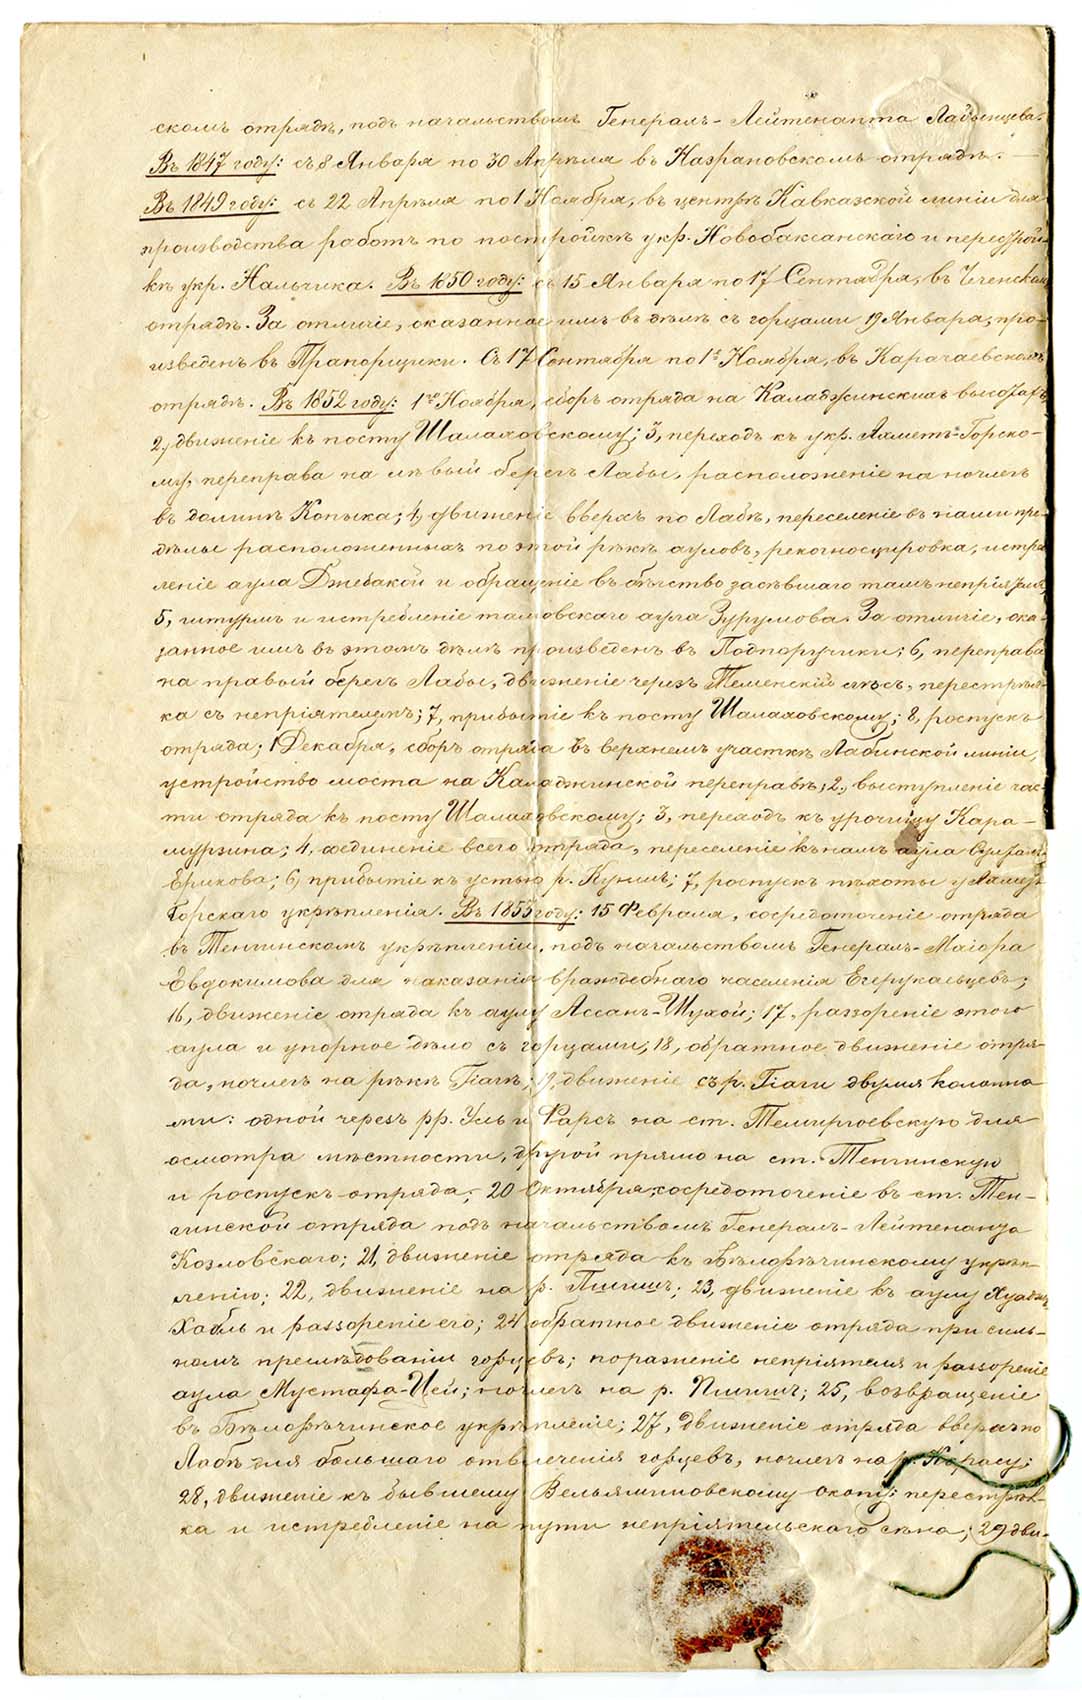 скомъ отрядѣ, подъ начальствомъ Генералъ-Лейтенанта Лабынцева.
Въ 1847 году: съ 8 Января по 30 Апрѣля въ Назрановскомъ отрядѣ.
Въ 1849 году: съ 22 Апрѣля по 1 Ноября, въ центрѣ Кавказской линіи для
производства работъ по постройкѣ укр. Новобаксанскаго и перестрой-
кѣ укр. Нальчика. Въ 1850 году: съ 15 Января по 17 Сентября, въ Чеченскомъ
отрядѣ. За отличіе, оказанное имъ въ дѣлѣ съ горцами 19 Января, про-
изведенъ въ Прапорщики. Съ 17 Сентября по 1е Ноября, въ Карачаевскомъ
отрядѣ. Въ 1852 году: 1го Ноября, сборъ отряда на Каладжинскихъ высотахъ,
2, движеніе къ посту Шалаховскому; 3, переходъ къ укр. Ахметъ-Горско-
му, переправа на лѣвый берегъ Лабы, расположеніе на ночлегъ
въ долинѣ Копыка; 4, движеніе вверхъ по Лабѣ, переселеніе въ наши пре-
дѣлы расположенныхъ по этой рѣкѣ ауловъ, рекогносцировка, истреб-
леніе аула Джебакой и обращеніе въ бѣгство засѣвшаго тамъ непріятеля,
5, штурмъ и истребленіе тамовскаго аула Зурумова. За отличіе, ока-
занное имъ въ этомъ дѣлѣ произведенъ въ Подпоручики; 6, переправа
на правый берегъ Лабы, движеніе черезъ Теменскій лѣсъ, перестрѣл-
ка съ непріятелемъ; 7, прибытіе къ посту Шалаховскому; 8, роспускъ
отряда; 1 Декабря, сборъ отряда въ верхнемъ участкѣ Лабинской линіи,
устройство моста на Каладжинской переправѣ; 2, выступленіе час-
ти отряда къ посту Шалаховскому; 3, переходъ къ урочищу Кара-
мурзина; 4, соединеніе всего отряда, переселеніе къ намъ аула
Ерикова; 6, прибытіе къ устью р. Куншъ; 7, роспускъ пѣхоты у Ахметъ
Горскаго укрѣпленія. Въ 1853 году: 15 Февраля, сосредоточеніе отряда
въ Тенгинскомъ укрѣпленіи, подъ начальствомъ Генералъ-Маіора
Евдокимова для наказанія враждебнаго населенія Егерукаевцевъ;
16, движеніе отряда къ аулу Ассанъ-Шухой; 17, раззореніе этого
аула и упорное дѣло съ горцами; 18, обратное движеніе отря-
да, ночлегъ на рѣкѣ Гіагѣ; 19, движеніе съ р. Гіаги двумя колонна
ми: одной черезъ рр. Уль и Фарсъ на ст. Темиргоевскую для
осмотра мѣстности, другой прямо на ст. Тенгинскую
и роспускъ отряда; 20 Октября, сосредоточеніе въ ст. Тен-
гинской отряда подъ начальствомъ Генералъ-Лейтенанта
Козловскаго; 21, движеніе отряда къ Бѣлорѣчинскому укрѣп-
ленію; 22, движеніе на р. Пшишъ; 23, движеніе къ аулу Хуаджъ
Хабль и раззореніе его; 24 обратное движеніе отряда при силь-
номъ преслѣдованіи горцевъ; пораженіе непріятеля и раззореніе
аула Мустафа-Цей; ночлегъ на р. Пшишъ; 25, возвращеніе
въ Бѣлорѣчинское укрѣпленіе; 27, движеніе отряда вверхъ по
Лабѣ для большаго отвлеченія горцевъ, ночлегъ на р. Карасу;
28, движеніе къ бывшему Вельяминовскому окопу; перестрѣл-
ка и истребленіе на пути непріятельскаго сѣна; 29 дви-